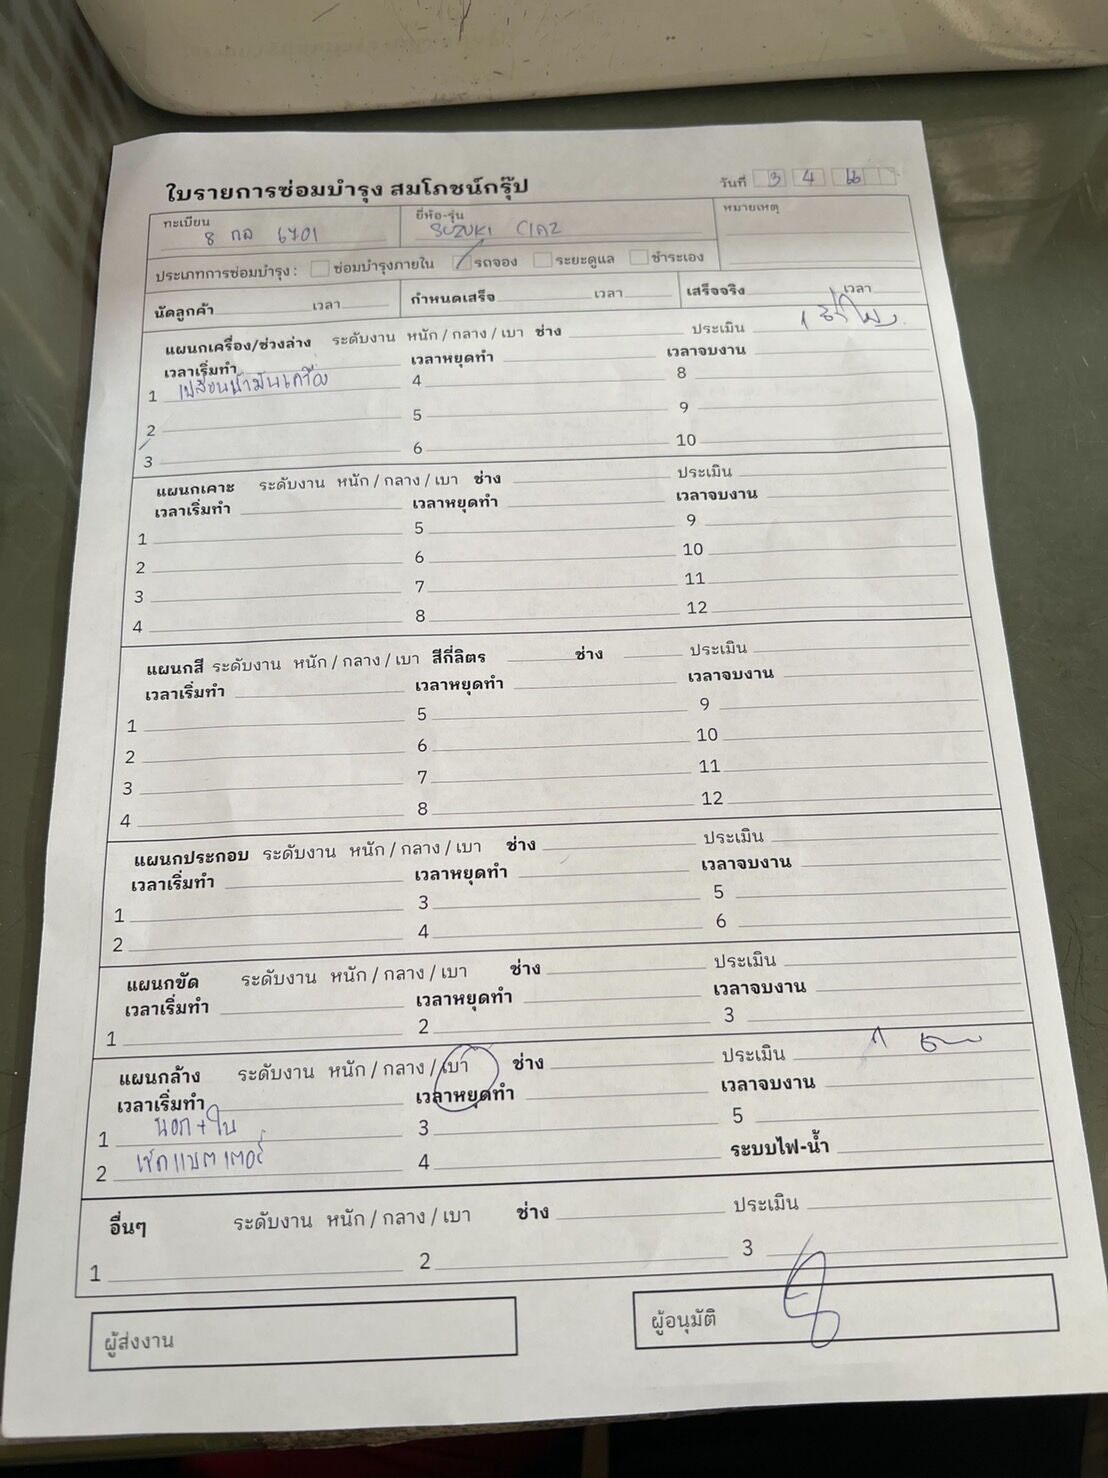 ใบรายการซ่อมบำรุง สมโภชน์กรุ๊ป วันที่ 3 4 66
ทะเบียน ยี่ห้อ-รุ่น หมายเหตุ
8 กอ 6701 SUZUKI CIAZ
ประเภทการซ่อมบำรุง : ซ่อมบำรุงภายใน รถจอง ระยะดูแล ชำระเอง
นัดลูกค้า เวลา กำหนดเสร็จ เวลา เสร็จจริง เวลา
แผนกเครื่อง/ช่วงล่าง ระดับงาน หนัก / กลาง / เบา ช่าง ประเมิน 1 ชั่วโมง
เวลาเริ่มทำ เวลาหยุดทำ เวลาจบงาน
1 เปลี่ยนน้ำมันเครื่อง 4 8
2 5 9
3 6 10
แผนกเคาะ ระดับงาน หนัก / กลาง / เบา ช่าง ประเมิน
เวลาเริ่มทำ เวลาหยุดทำ เวลาจบงาน
1 5 9
2 6 10
3 7 11
4 8 12
แผนกสี ระดับงาน หนัก / กลาง / เบา สีกี่ลิตร ช่าง ประเมิน
เวลาเริ่มทำ เวลาหยุดทำ เวลาจบงาน
1 5 9
2 6 10
3 7 11
4 8 12
แผนกประกอบ ระดับงาน หนัก / กลาง / เบา ช่าง ประเมิน
เวลาเริ่มทำ เวลาหยุดทำ เวลาจบงาน
1 3 5
2 4 6
แผนกขัด ระดับงาน หนัก / กลาง / เบา ช่าง ประเมิน
เวลาเริ่มทำ เวลาหยุดทำ เวลาจบงาน
1 2 3
แผนกล้าง ระดับงาน หนัก / กลาง / เบา ช่าง ประเมิน
เวลาเริ่มทำ เวลาหยุดทำ เวลาจบงาน
1 นอก+ใน 3 5
2 เช็คแบตเตอรี่ 4 ระบบไฟ-น้ำ
อื่นๆ ระดับงาน หนัก / กลาง / เบา ช่าง ประเมิน
1 2 3
ผู้ส่งงาน ผู้อนุมัติ